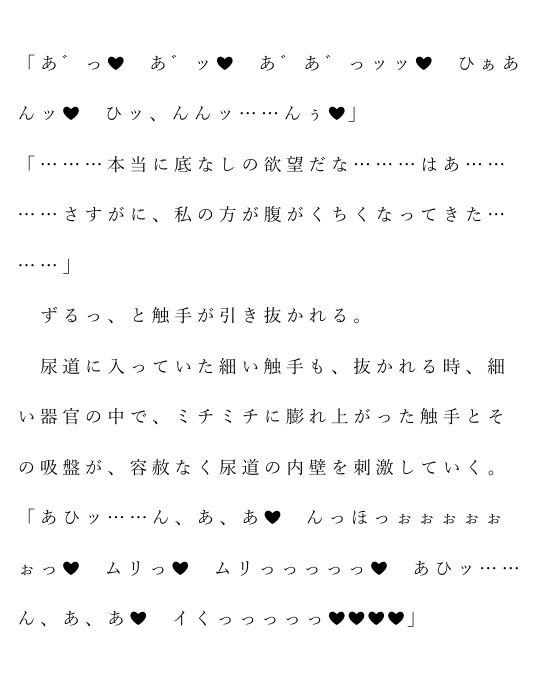 「あ゛っ♥　あ゛ッ♥　あ゛あ゛っッッ♥　ひぁあ
んッ♥　ひッ、んんッ……んぅ♥」
「………本当に底なしの欲望だな………はあ……
……さすがに、私の方が腹がくちくなってきた…
……」
　ずるっ、と触手が引き抜かれる。
　尿道に入っていた細い触手も、抜かれる時、細
い器官の中で、ミチミチに膨れ上がった触手とそ
の吸盤が、容赦なく尿道の内壁を刺激していく。
「あひッ……ん、あ、あ♥　んっほっぉぉぉぉぉ
ぉっ♥　ムリっ♥　ムリっっっっっ♥　あひッ……
ん、あ、あ♥　イくっっっっっ♥♥♥♥」